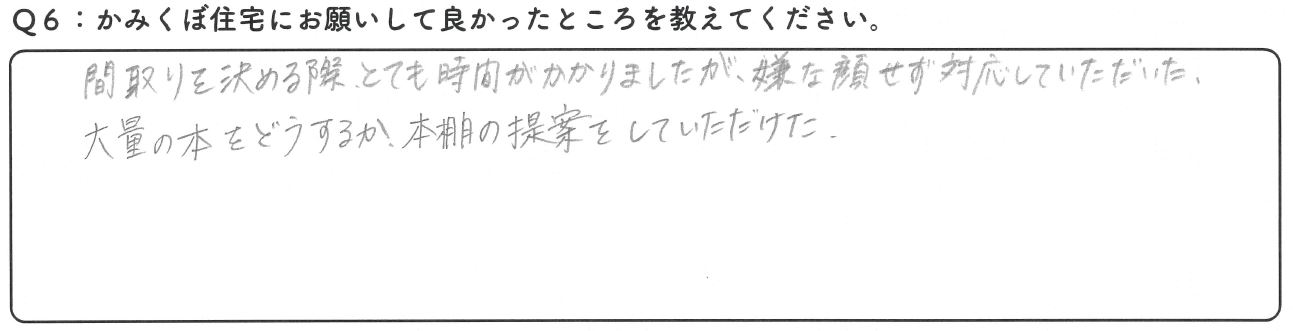 Q6：かみくぼ住宅にお願いして良かったところを教えてください。
間取りを決める際、とても時間がかかりましたが、嫌な顔せず対応していただいた、
大量の本をどうするか、本棚の提案をしていただけた.